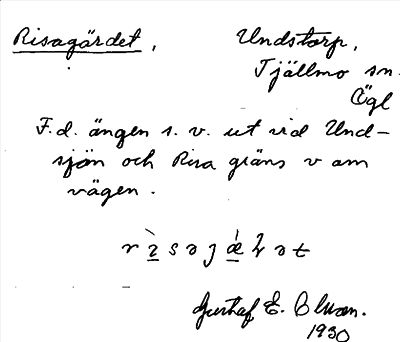 Risagärdet, Undstorp,
Tjällmo sn.
Ögl
F.d. ängen s. v. ut vid Und-
sjön och Risa gräns v om
vägen.
Gustaf E.
1930